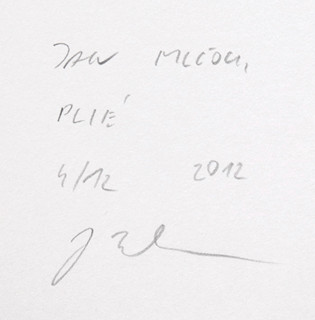 JAN MLČOCH,
PLIÉ
4/12 2012